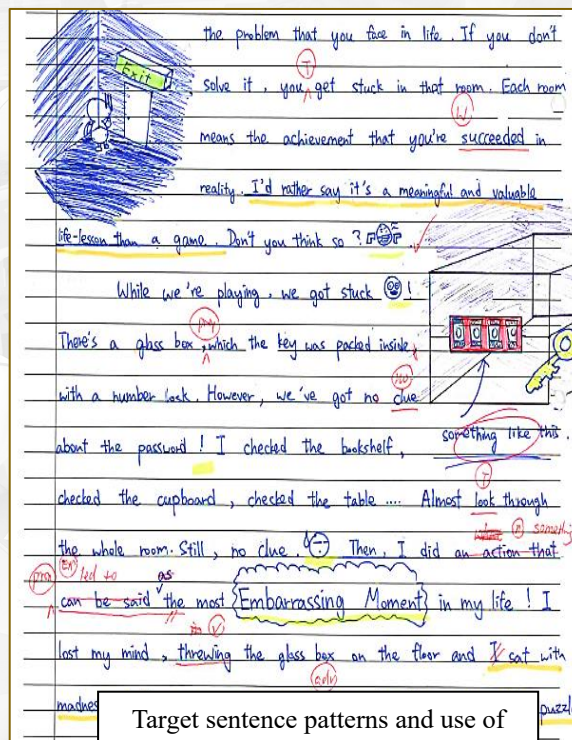 the problem that you face in life. If you don't
Exit
T
solve it, you get stuck in that room. Each room
W
means the achievement that you're succeeded in
reality. I'd rather say it's a meaningful and valuable
life-lesson than a game. Don't you think so?
While we're playing, we got stuck !
prep
There's a glass box, which the key was packed inside,
No
with a number lock. However, we've got no clue
about the password ! I checked the bookshelf,
something like this.
T
checked the cupboard, checked the table .... Almost look through
somethi
the whole room. Still, no clue. Then, I did an action that
led to as
can be said the most Embarrassing Moment in my life ! I
V
lost my mind, threwing the glass box on the floor and I sat with
adv
madnes
puzzl
Target sentence patterns and use of